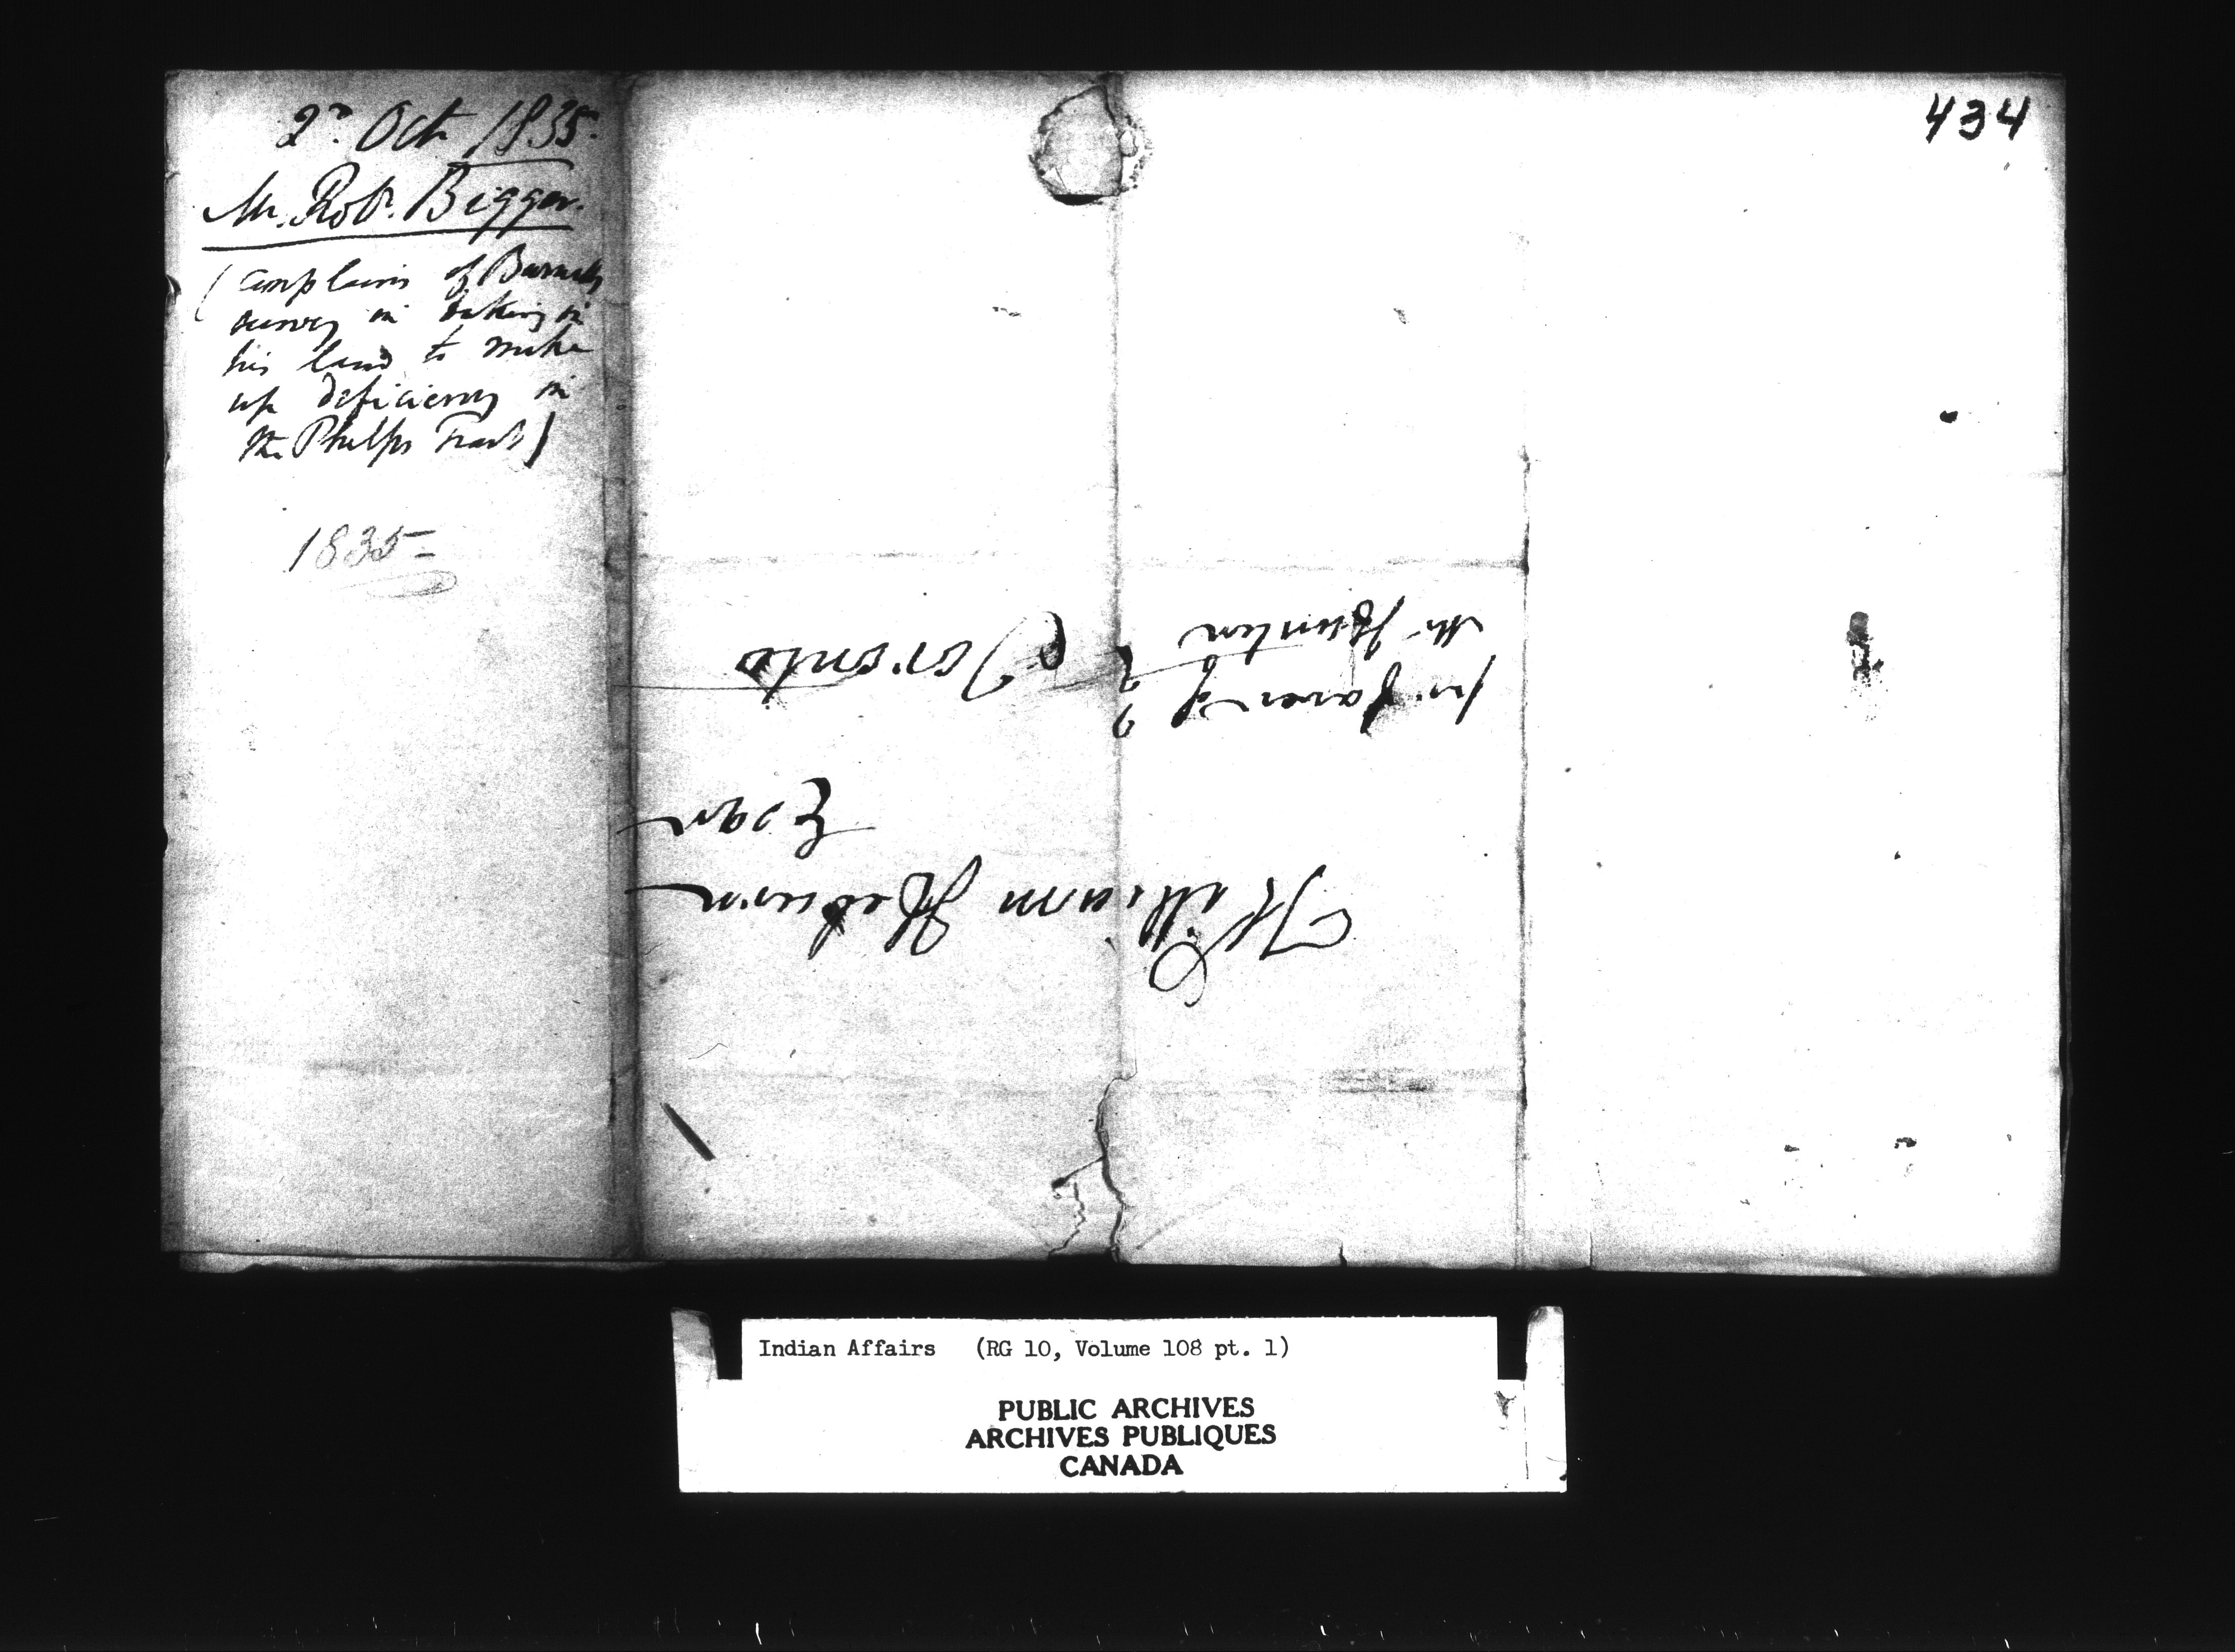 434
2d. Oct 1835.
Mr. Robt. Biggar.
(Complains of Burwells
survey in taking in
his land to make
up deficiency in
the Phelps Tract)
1835 -
William Hepburn
Esqr
Toronto
pr favor of
Mr Hunter
Indian Affairs (RG 10, Volume 108 pt. 1)
PUBLIC ARCHIVES
ARCHIVES PUBLIQUES
CANADA